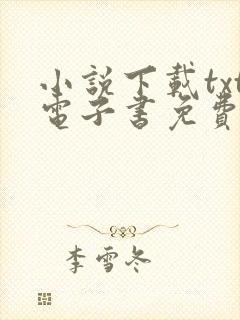 小說下載txt
電子書免費
李雪冬